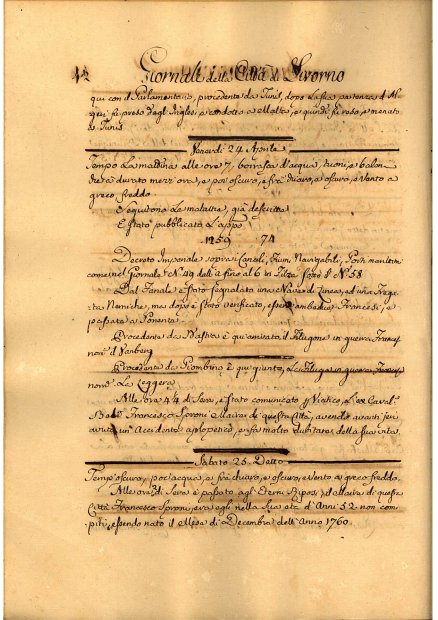 42 Giornale della Città di Livorno
qui con il Parlamentario, procedente da Tunis, dopo la sua partenza d
qui fu preso dagl' Inglesi, e condotto a Malta, e quindi fu reso, e menato
a Tunis
Venerdì 24 Aprile
Tempo la mattina alle ore 7. borrasca d'acqua, tuoni, e
durato mezz'ora, e poi oscuro, e frà chiaro, e oscuro, e vento a
greco freddo
Seguitono le malattie, già descritte
È stato pubblicato L'
1259 74
Decreto Imperiale sopra i Canali, Fiumi Navigabili, Porti
come nel Giornale N.° 49 dell' a fino al 6 in N.° 58
Dal Fanale è stato segnalato una Nave di Linea, ed una
Nemiche, ma dopo è stato verificato, essere ambedue Francesi, e
passate a Ponente
Procedente da Bastia è quì arrivato il Filugone in guerra
nom.
Procedente da Piombino è quì giunto, La Filuga in guerra
nom. La Leggera
Alle ore 4 4 di Sera, è stato comunicato p. Viatico, il Sre Caval.
Francesco Sproni Maire di questa Città, avendo avanti
avuto un' Accidente apopletico, e fà molto dubitare della sua vita.
Sabato 25. Detto
Tempo oscuro, poi acqua, e frà chiaro, e oscuro, e vento a greco freddo.
Alle ore di Sera è passato agli Eterni Riposi il Maire di questa
Città Francesco Sproni, era egli nella sua età d'Anni 52 non com
piti, essendo nato il Mese di Decembre dell'Anno 1760.